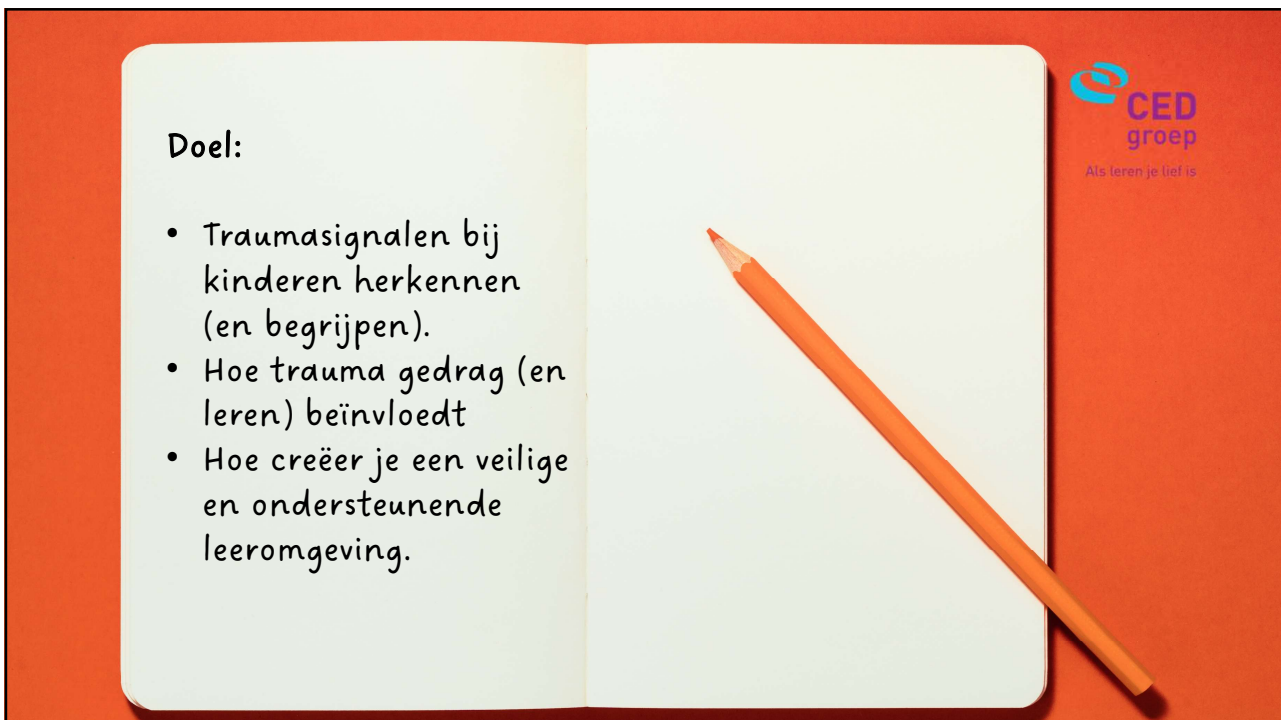 Doel:
• Traumasignalen bij
kinderen herkennen
(en begrijpen).
• Hoe trauma gedrag (en
leren) beïnvloedt
• Hoe creëer je een veilige
en ondersteunende
leeromgeving.
CED
groep
Als leren je lief is